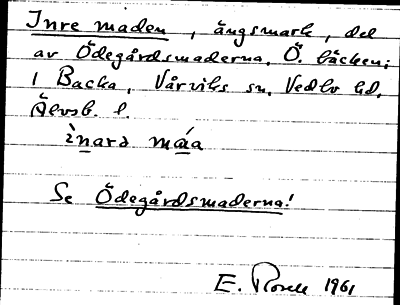 Inre maden, ängsmark, del
av Ödegårdsmaderna. Ö. bäcken;
1 Backa, Vårviks sn, Vedbo hd,
Älvsb. l.
ìnarə máa
Se Ödegårdsmaderna!
E. 1961